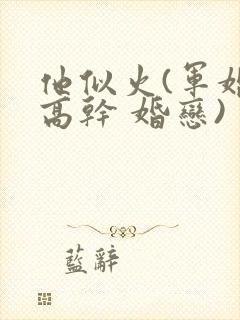 他似火(軍婚
高幹 婚戀)
藍辭